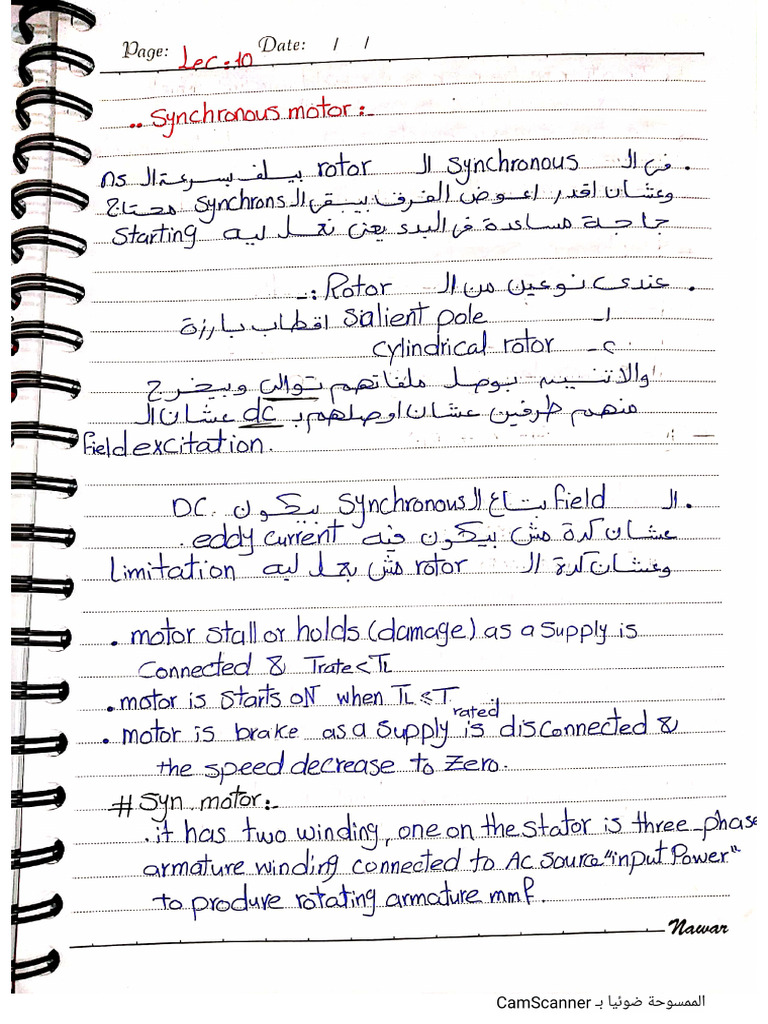 Page: Lec: 10 Date: / /
.. Synchronous motor :-
. في ال Synchronous ال rotor بيلف بسرعة ال ns
وعشان اقدر اعوض الفرق بيبقى ال Synchrons محتاج
حاجة مساعدة في البدئ يعني نعمل ليه Starting
. عندي نوعين من ال Rotor :-
١- Salient pole اقطاب بارزة
٢- Cylindrical rotor
والاتنين بوصل ملفاتهم توالي وبيخرج
منهم طرفين عشان اوصلهم ب dc عشان ال
field excitation.
. ال field بتاع ال Synchronous بيكون DC.
عشان كدة مش بيكون فيه eddy current.
وعشان كدة ال rotor مش بعمل ليه Limitation
. motor stall or holds (damage) as a supply is
Connected & Trate < TL
. motor is starts oN when TL ≤ T rated
. motor is brake as a supply is disconnected &
the speed decrease to Zero.
# Syn. motor :-
. it has two winding, one on the stator is three-phase
armature winding connected to Ac source "input Power"
to produre rotating armature mmf.
Nawar
الممسوحة ضوئيا بـ CamScanner